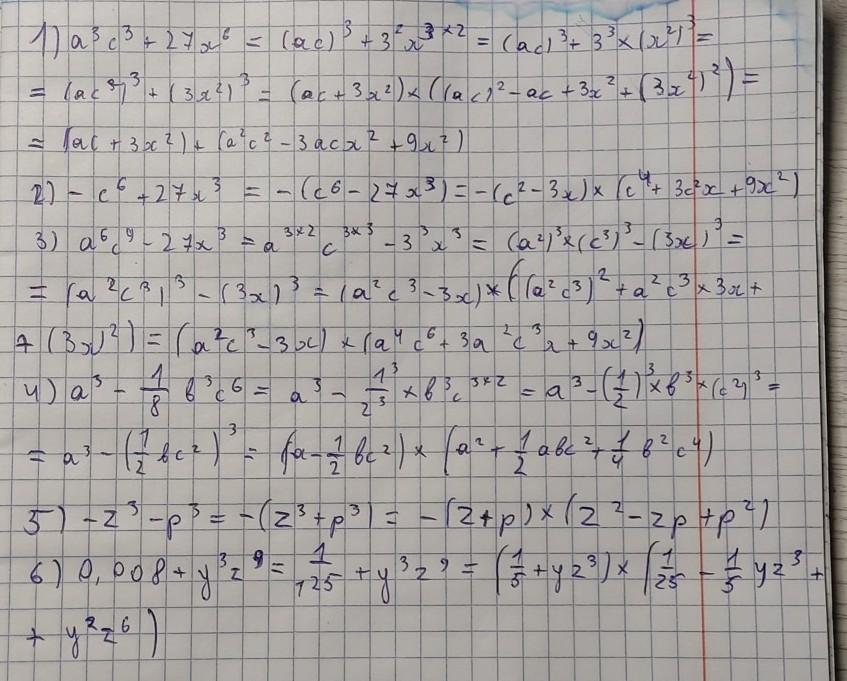 1) a³c³ + 27x⁶ = (ac)³ + 3²x³ˣ² = (ac)³ + 3³ × (x²)³ =
= (ac³)³ + (3x²)³ = (ac + 3x²) × ((ac)² - ac + 3x² + (3x²)²) =
= (ac + 3x²) + (a²c² - 3acx² + 9x²)
2) - c⁶ + 27x³ = -(c⁶ - 27x³) = -(c² - 3x) × (c⁴ + 3c²x + 9x²)
3) a⁶c⁹ - 27x³ = a³ˣ²c³ˣ³ - 3³x³ = (a²)³ × (c³)³ - (3x)³ =
= (a²c³)³ - (3x)³ = (a²c³ - 3x) × ((a²c³)² + a²c³ × 3x +
+ (3x)²) = (a²c³ - 3x) × (a⁴c⁶ + 3a²c³x + 9x²)
4) a³ - 1/8 b³c⁶ = a³ - 1³/2³ × b³c³ˣ² = a³ - (1/2)³ × b³ × (c²)³ =
= a³ - (1/2 bc²)³ = (a - 1/2 bc²) × (a² + 1/2 abc² + 1/4 b²c⁴)
5) -z³ - p³ = -(z³ + p³) = -(z + p) × (z² - zp + p²)
6) 0,008 + y³z⁹ = 1/125 + y³z⁹ = (1/5 + yz³) × (1/25 - 1/5 yz³ +
+ y²z⁶)